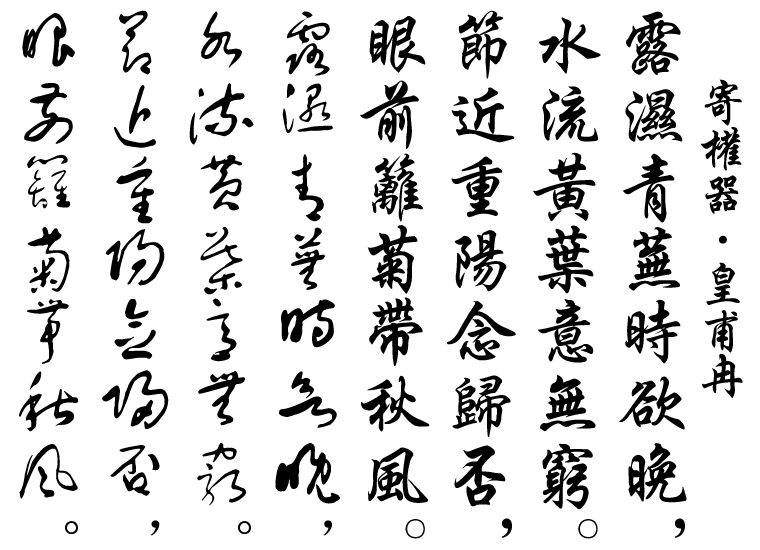 寄權器·皇甫冉
露濕青蕪時欲晚，
水流黃葉意無窮。
節近重陽念歸否，
眼前籬菊帶秋風。
露濕青蕪時欲晚，
水流黃葉意無窮。
節近重陽念歸否，
眼前籬菊帶秋風。